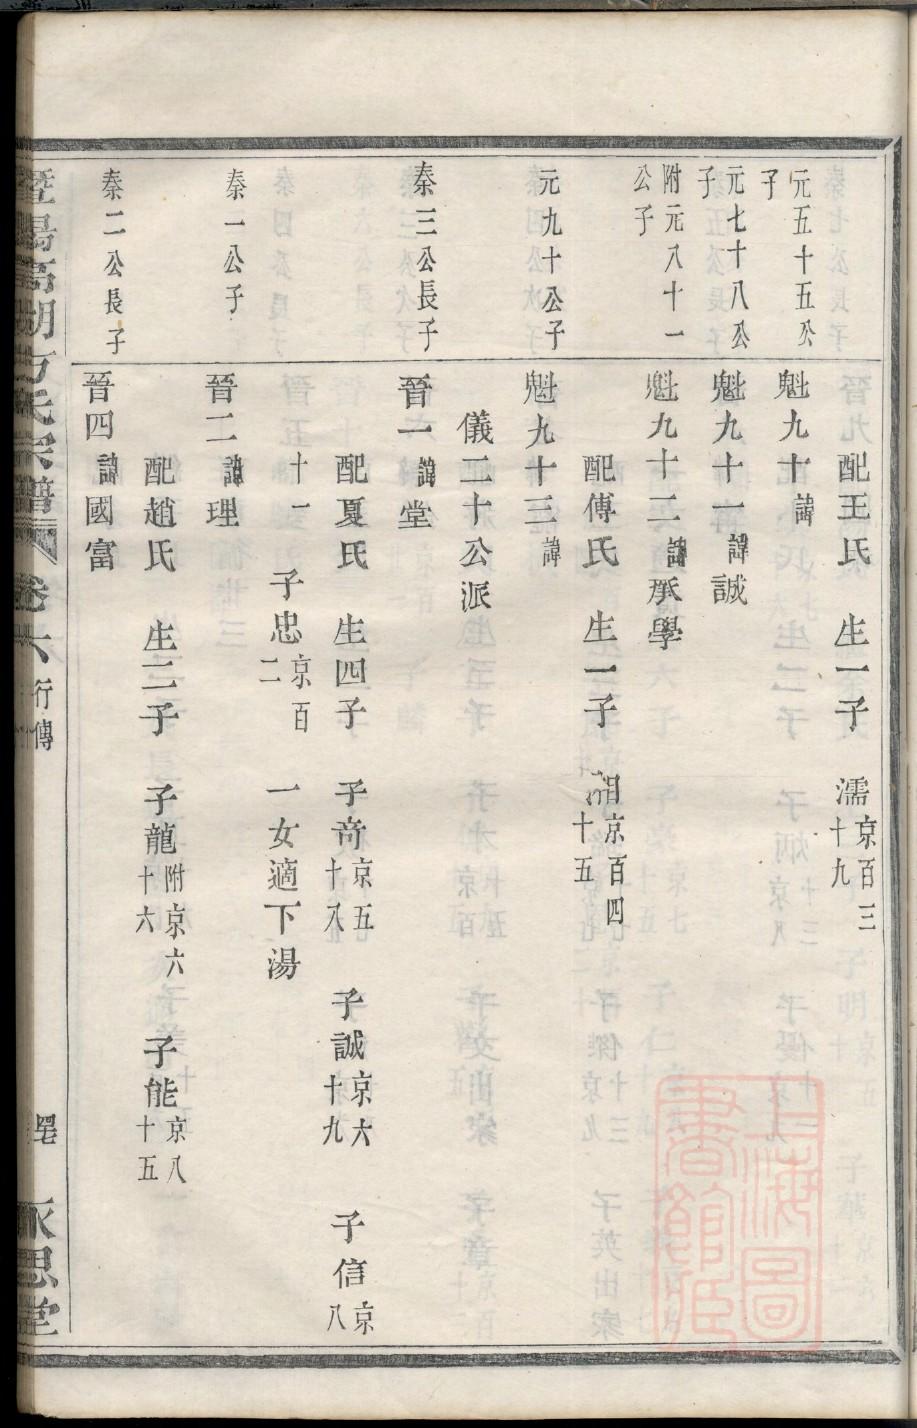 配王氏　生一子　濡京百三十九
元五十五公子
魁九十諱
元七十八公子
魁九十一諱誠
附元八十一公子
魁九十二諱承學
配傅氏　生一子　京百四十五
元九十公子
魁九十三諱
儀二十公派
秦三公長子
晉一諱堂
配夏氏　生四子　子奇京五十八　子誠京六十九　子信京八
十一　子忠京百二　一女適下湯
秦一公子
晉二諱理
配趙氏　生二子　子龍附京六十六　子能京八十五
秦二公長子
晉四諱國富
暨陽高湖方氏宗譜　卷六　行傳　永思堂
上海圖書館藏